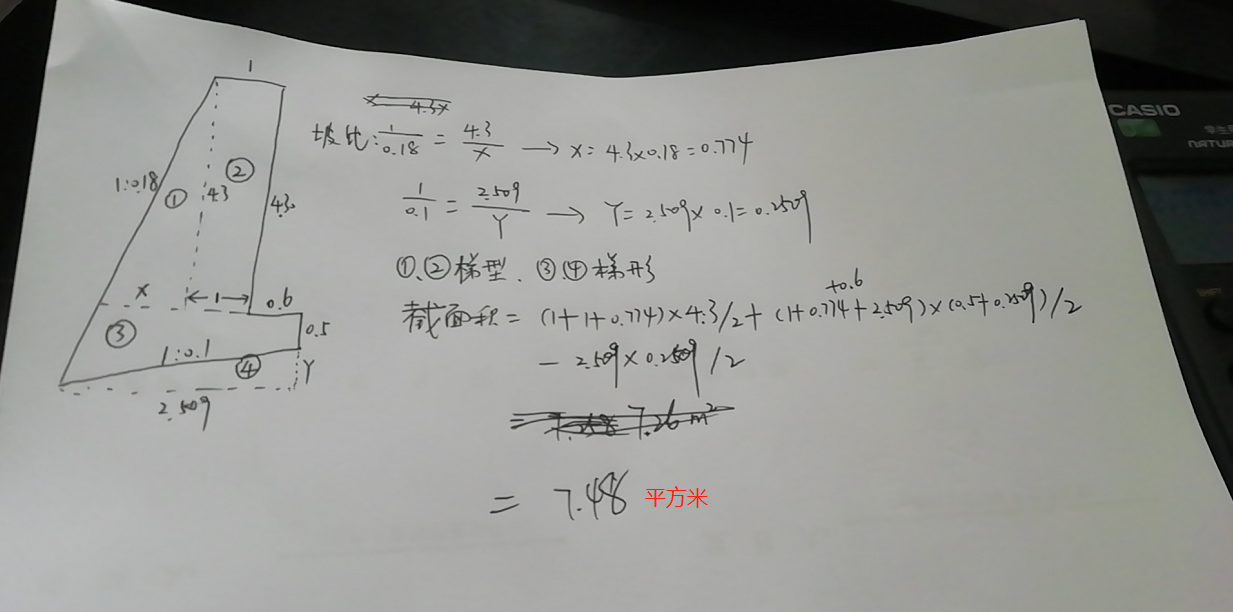 1
1:0.18
①
②
4.3
4.3
X
1
0.6
0.5
③
1:0.1
④
Y
2.509
坡比: 1/0.18 = 4.3/X → X = 4.3×0.18 = 0.774
1/0.1 = 2.509/Y → Y = 2.509×0.1 = 0.2509
①、②梯型、③、④梯形
+0.6
截面积 = (1+1+0.774)×4.3/2 + (1+0.774+2.509)×(0.5+0.2509)/2
- 2.509×0.2509/2
= 7.26m²
= 7.48 平方米
CASIO
NATUR